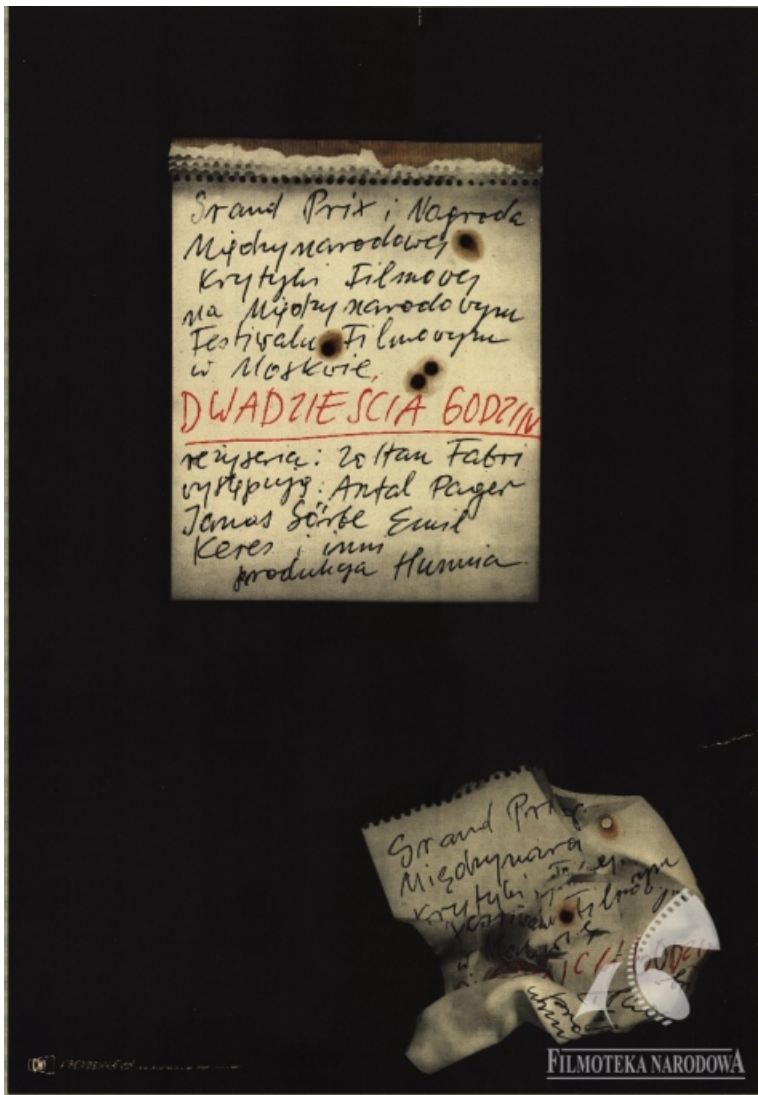 Grand Prix i Nagroda
Międzynarodowej
Krytyki Filmowej
na Międzynarodowym
Festiwalu Filmowym
w Moskwie
DWADZIEŚCIA GODZIN
reżyseria: Zoltan Fabri
występują: Antal Pager
Janos Sörbe Emil
Keres i inni
produkcja Hunnia
Grand Prix
Międzynaro
Krytyki
Festiwalu Filmowym
FILMOTEKA NARODOWA